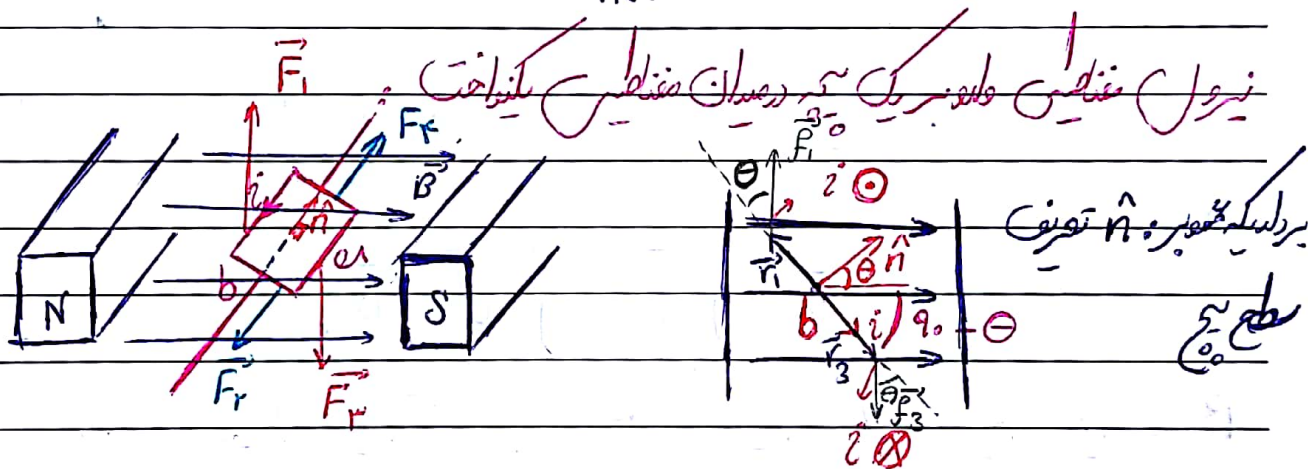 نیروی مغناطیسی وارد بر یک در میدان مغناطیسی یکنواخت
F₁
F₄
B
i
n̂
a
b
N
S
F₂
F₃
θ
f₁
i ⊙
r₁
θ n̂
b
i
90 - θ
r₃
θ f₃
i ⊗
بردار یکه عمود بر: n̂ تعریف
سطح پیچه